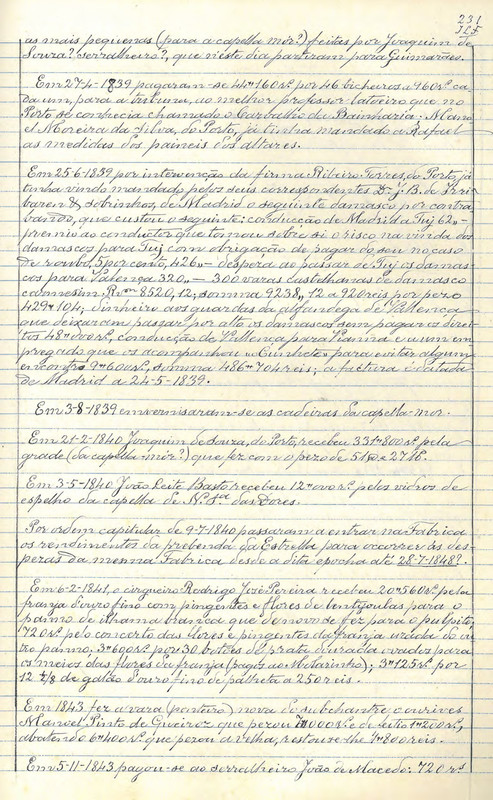 231
as mais pequenas (para a capella mór?) feitas por Joaquim de
Souza? serralheiro?, que n'este dia partiram para Guimarães.
Em 27-4-1839 pagaram-se 44$160 rs por 46 bicheiros a 960 rs ca
da um, para a tribuna, ao melhor professor latoeiro que no
Porto se conhecia chamado o Carvalho da Bainharia. Mano
el Moreira da Silva, do Porto, já tinha mandado a Rafael
as medidas dos paineis dos altares.
Em 25-6-1839 por intervenção da firma Ribeiro Torres, do Porto, já
tinha vindo mandado pelos seus correspondentes D. J. B. de
baren & sobrinhos, de Madrid o seguinte damasco por contra
bando, que custou o seguinte: conducção de Madrid a Tuy 62,,-
premio ao conductor que tomou sobre si o risco na vinda dos
damascos para Tuy com obrigação de pagar do seu no caso
de roubo, 5 por cento, 426,,- despeza ao passar de Tuy os damas-
cos para Valença 320,,- 300 varas castelhanas de damasco
carmesim, 8520,12, somma 9238,,12 a 920 reis por pezo
429$104; dinheiro aos guardas da alfandega de Valença
que deixaram passar por alto os damascos sem pagar os direi
tos 48$000 rs, conducção de Valença para Vianna e a um em
pregado que os acompanhou para evitar algum
encontro 9$600 rs, somma 486$704 reis; a factura é datada
de Madrid a 24-5-1839.
Em 3-8-1839 envernisaram-se as cadeiras da capella-mor.
Em 21-2-1840 Joaquim de Souza, do Porto, recebeu 331$800 rs pela
grade (da capella-mór?) que fez com o pezo de
Em 3-5-1840 João Leite Basto recebeu 12$000 rs pelos vidros de
espelho da capella de N. Sra das Dores.
Por ordem capitular de 9-7-1840 passaram a entrar na Fabrica
os rendimentos da prebenda da Estrella para occorrer ás des-
pezas da mesma Fabrica desde a dita epocha até 28-7-1848?.
Em 6-2-1841, o cirgueiro Rodrigo José Pereira recebeu 20$560 rs pela
franja d'ouro fino com pingentes e flores de lentijoulas para o
panno de lhama branca que de novo se fez para o pulpito;
720 rs pelo concerto das flores e pingentes da franja usada do ou
tro panno; 3$600 rs por 30 botões de prata dourada ovados para
os meios das flores da franja (pagos ao Motarinho); 3$125 rs por
12 1/8 de galão d'ouro fino de palheta a 250 reis.
Em 1843 fez a vara (ponteiro) nova do subchantre, o ourives
Manoel Pinto de Queiroz que pezou 7$000 rs de feitio 1$200 rs,
abatendo 6$400 rs que pezou a velha, restou-se-lhe 1$800 reis.
Em 5-11-1843 pagou-se ao serralheiro João de Macedo: 720 rs